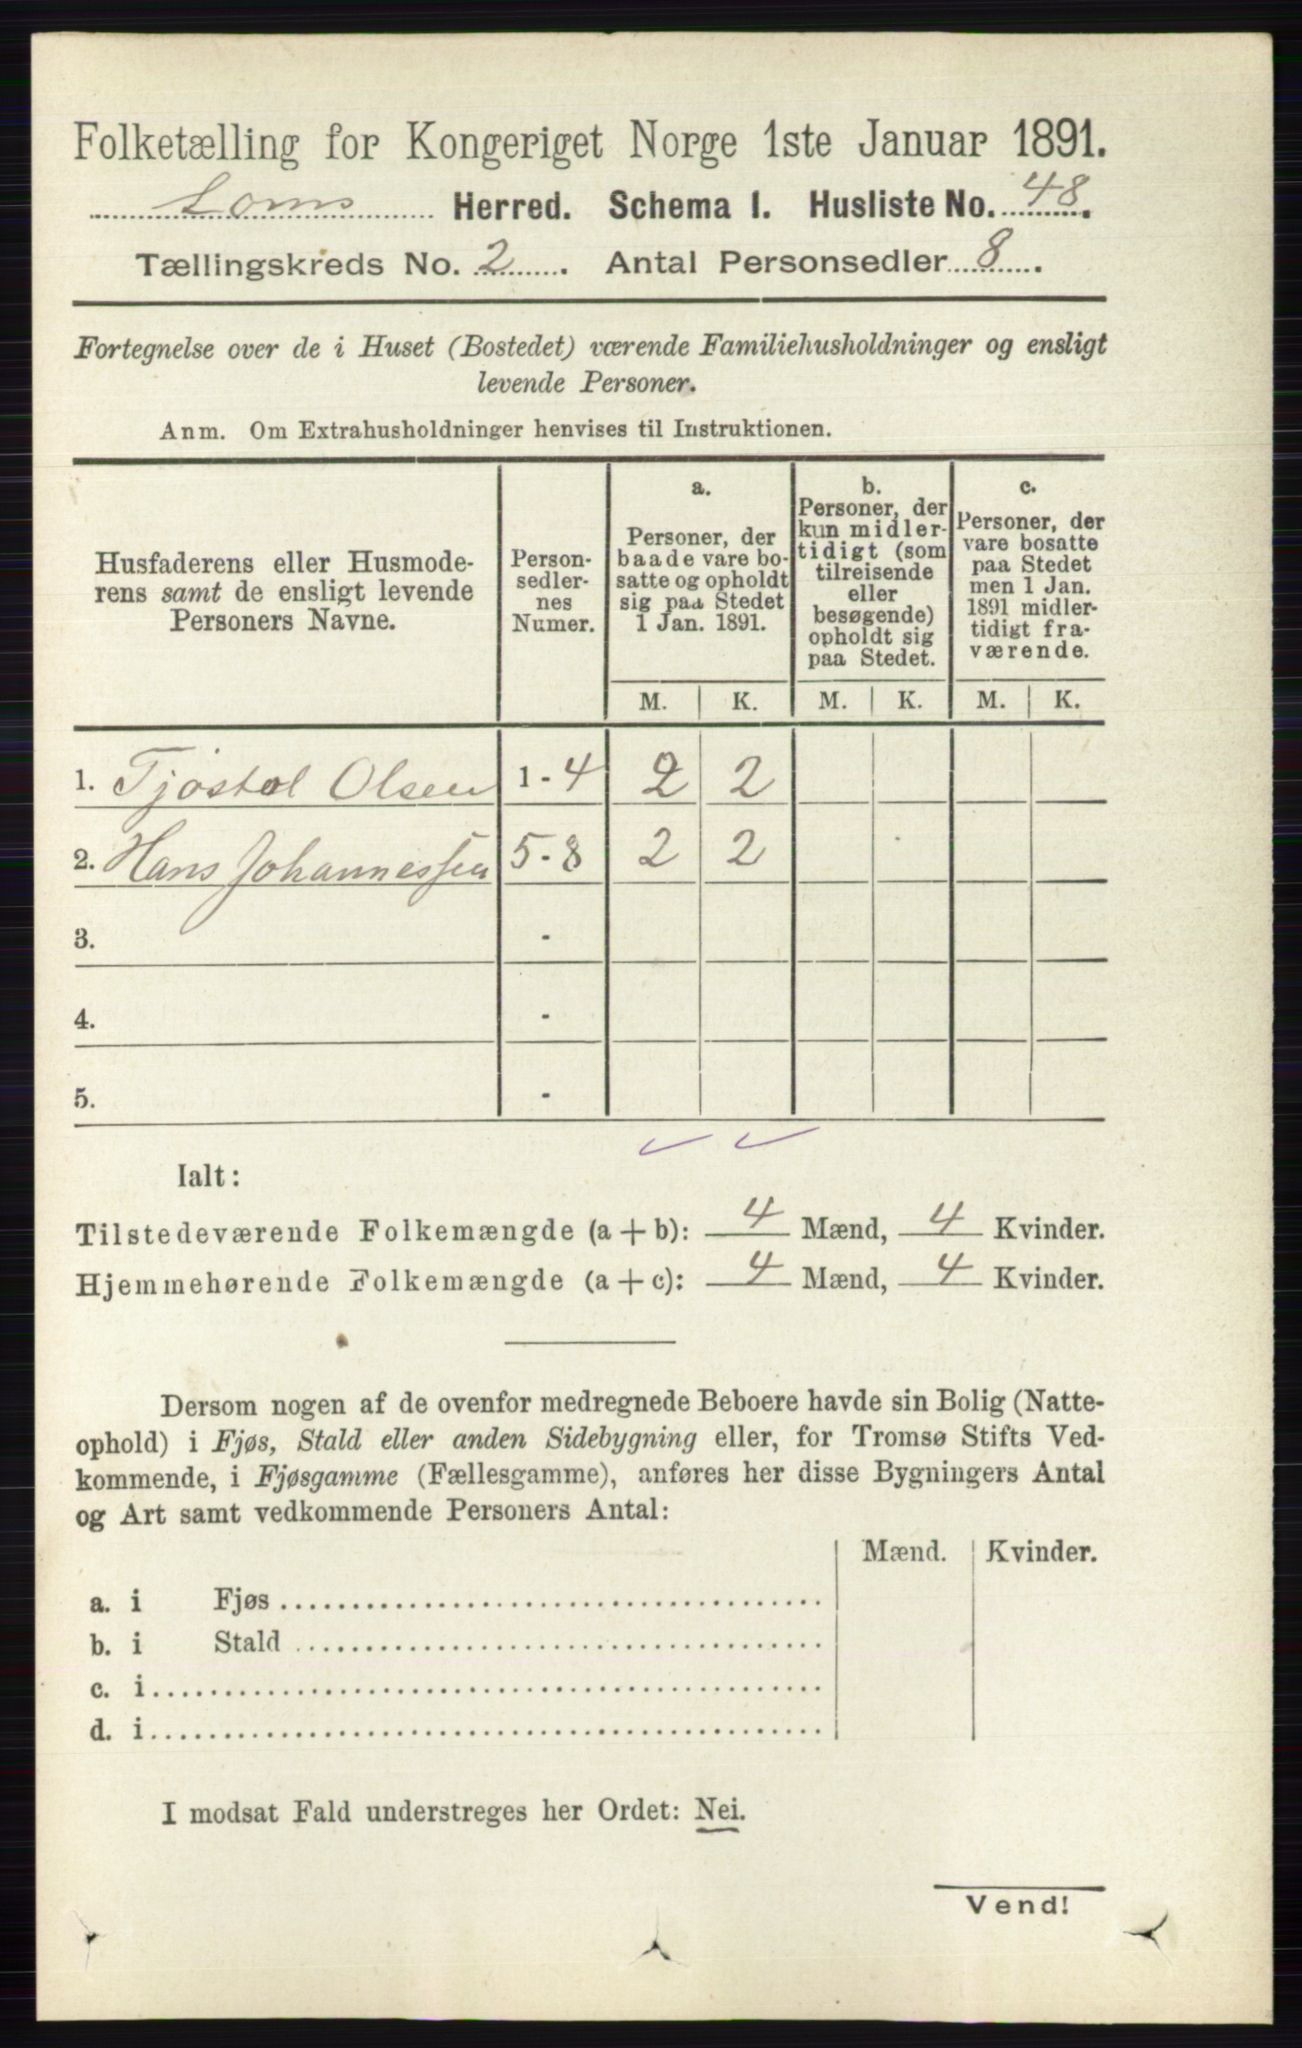 Folketælling for Kongeriget Norge 1ste Januar 1891.
Loms Herred. Schema I. Husliste No. 48.
Tællingskreds No. 2. Antal Personsedler 8.
Fortegnelse over de i Huset (Bostedet) værende Familiehusholdninger og ensligt
levende Personer.
Anm. Om Extrahusholdninger henvises til Instruktionen.
Husfaderens eller Husmode-
rens samt de ensligt levende
Personers Navne.
Person-
sedler-
nes
Numer.
a.
Personer, der
baade vare bo-
satte og opholdt
sig paa Stedet
1 Jan. 1891.
b.
Personer, der
kun midler-
tidigt (som
tilreisende
eller
besøgende)
opholdt sig
paa Stedet.
c.
Personer, der
vare bosatte
paa Stedet
men 1 Jan.
1891 midler-
tidigt fra-
værende.
M. K. M. K. M. K.
1. Tjøstol Olsen 1-4 2 2
2. Hans Johannessen 5-8 2 2
3. -
4. -
5. -
Ialt:
Tilstedeværende Folkemængde (a+b): 4 Mænd, 4 Kvinder.
Hjemmehørende Folkemængde (a+c): 4 Mænd, 4 Kvinder.
Dersom nogen af de ovenfor medregnede Beboere havde sin Bolig (Natte-
ophold) i Fjøs, Stald eller anden Sidebygning eller, for Tromsø Stifts Ved-
kommende, i Fjøsgamme (Fællesgamme), anføres her disse Bygningers Antal
og Art samt vedkommende Personers Antal:
Mænd. Kvinder.
a. i Fjøs
b. i Stald
c. i
d. i
I modsat Fald understreges her Ordet: Nei.
Vend!